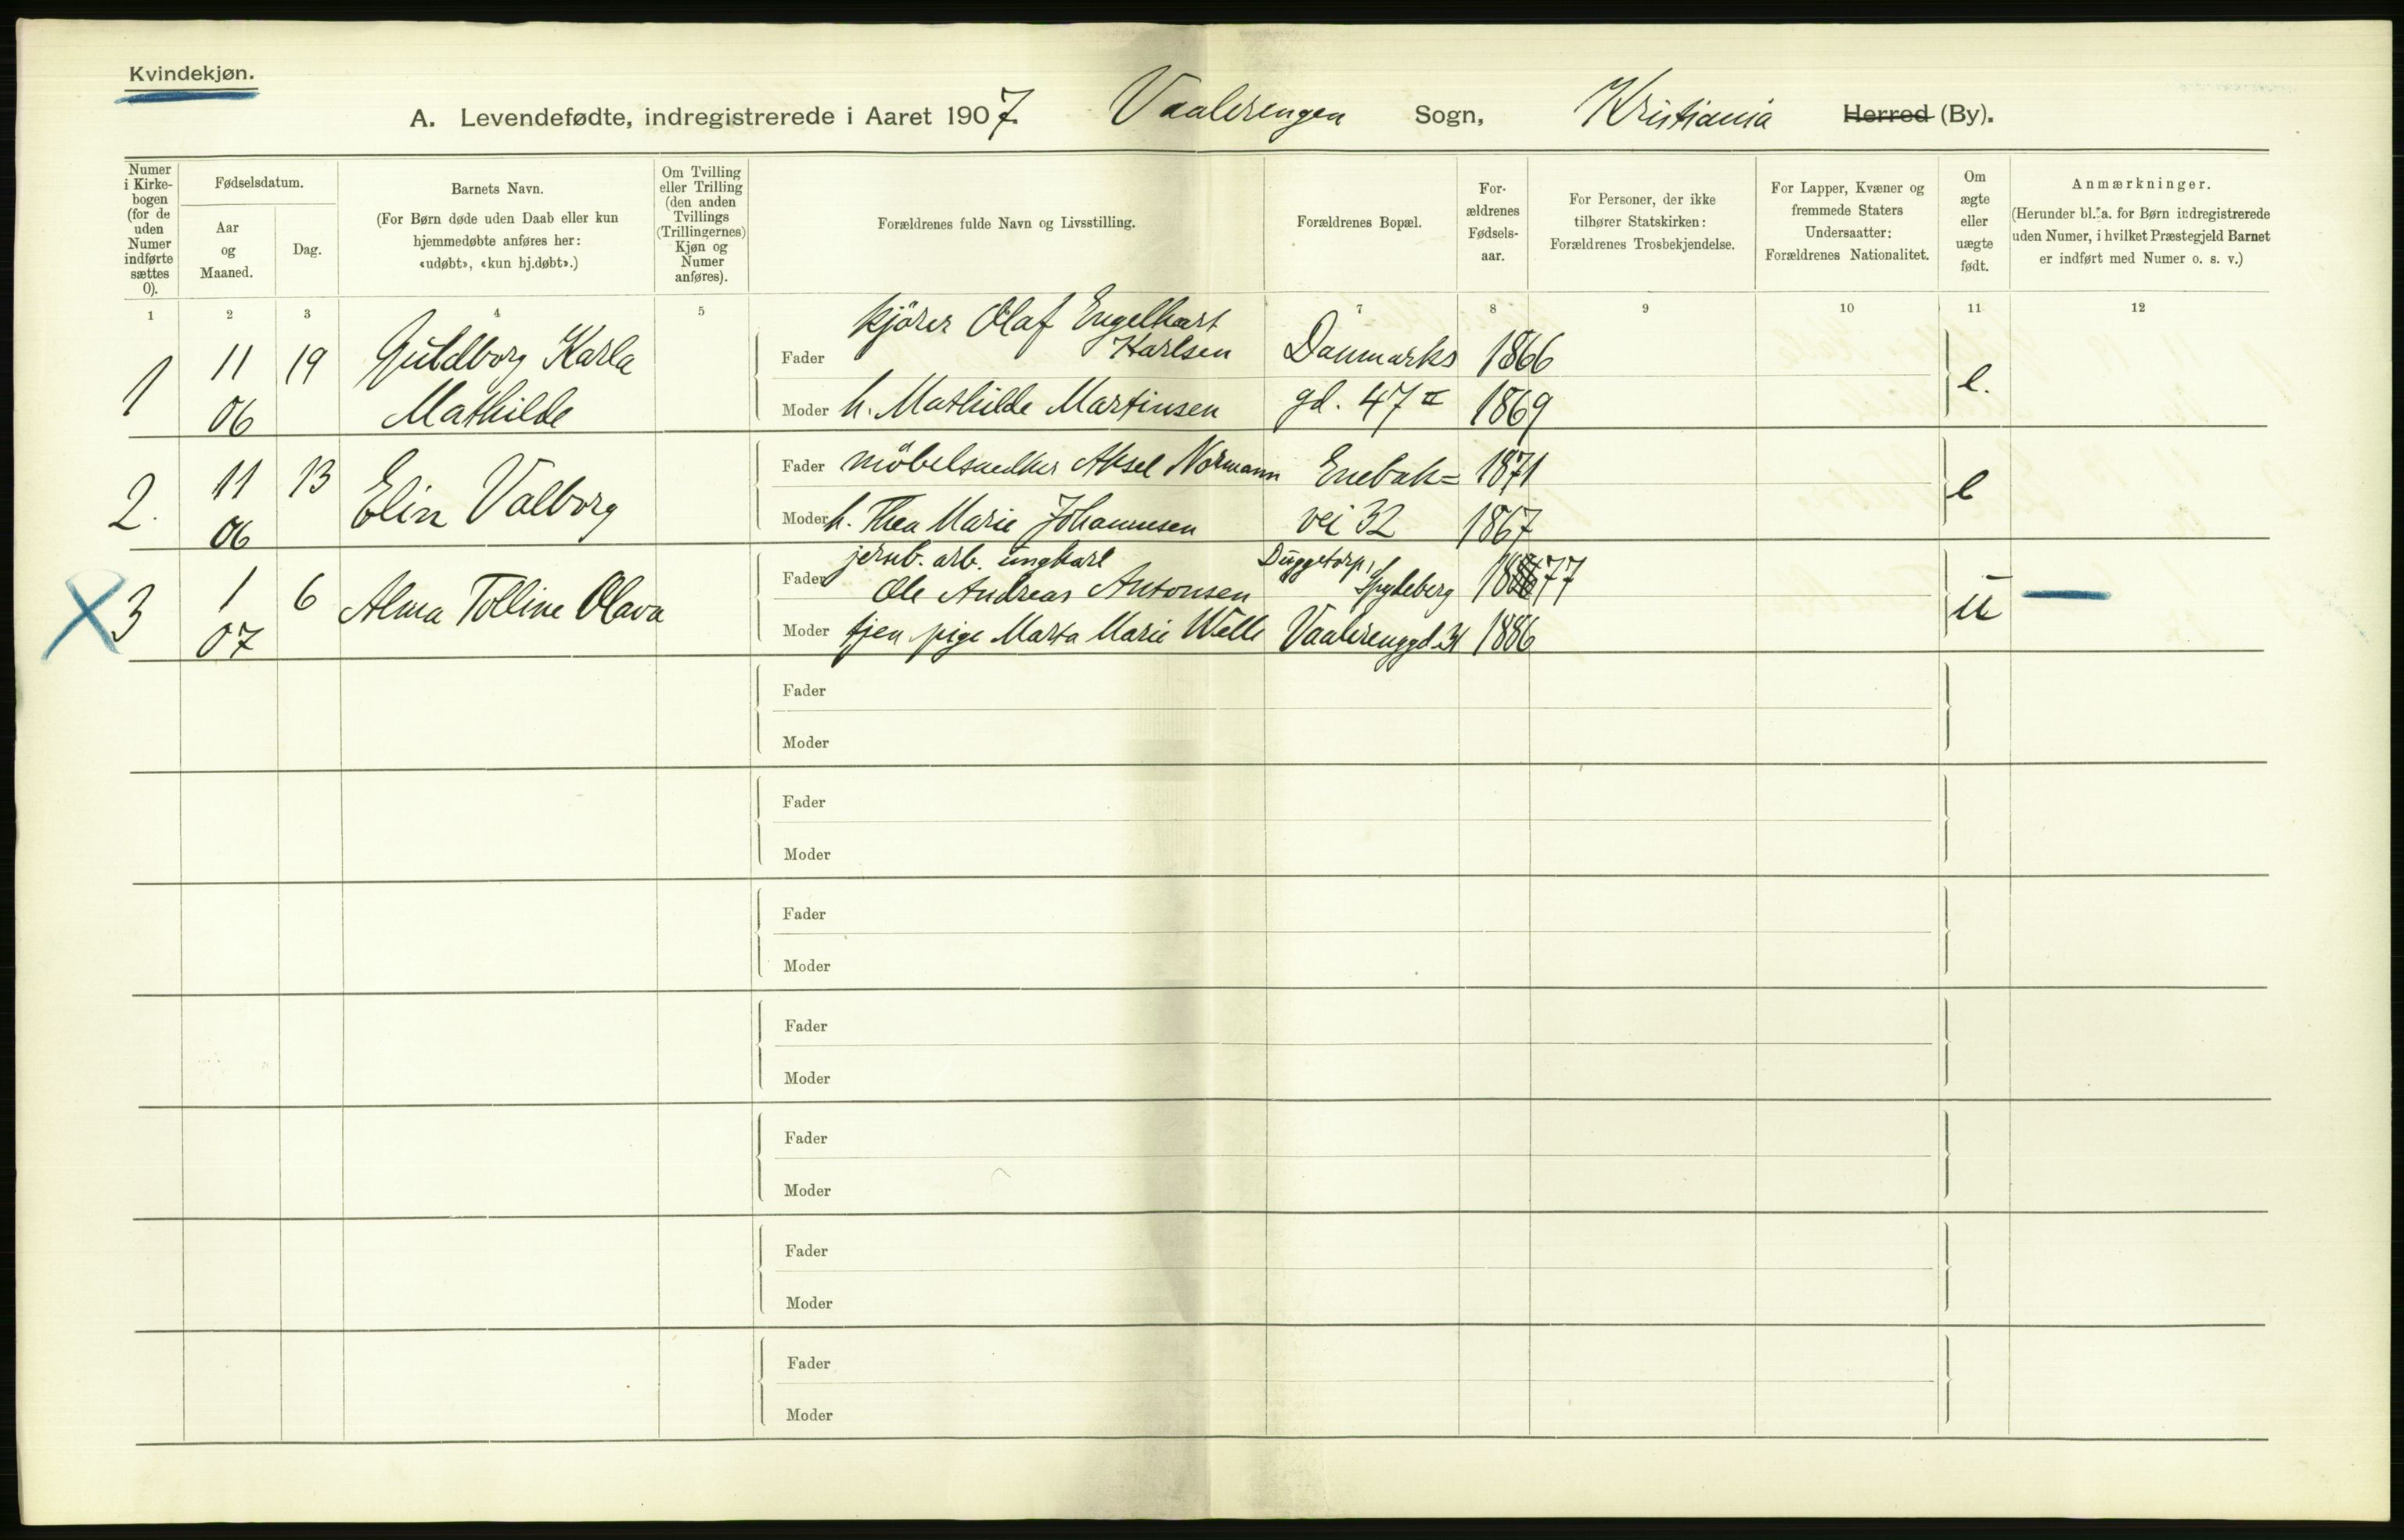 Kvindekjøn.
A. Levendefødte, indregistrerede i Aaret 1907. Vaalerengen Sogn, Kristiania Herred (By).
Numer i Kirkebogen (for de uden Numer indførte sættes 0).
Fødselsdatum.
Aar og Maaned.
Dag.
Barnets Navn.
(For Børn døde uden Daab eller kun hjemmedøbte anføres her: «udøbt», «kun hj.døbt».)
Om Tvilling eller Trilling (den anden Tvillings (Trillingernes) Kjøn og Numer anføres).
Forældrenes fulde Navn og Livsstilling.
Forældrenes Bopæl.
Forældrenes Fødselsaar.
For Personer, der ikke tilhører Statskirken: Forældrenes Trosbekjendelse.
For Lapper, Kvæner og fremmede Staters Undersaatter: Forældrenes Nationalitet.
Om ægte eller uægte født.
Anmærkninger.
(Herunder bl. a. for Børn indregistrerede uden Numer, i hvilket Præstegjeld Barnet er indført med Numer o. s. v.)
1 2 3 4 5 7 8 9 10 11 12
1 11 06 19 Guldborg Karla Mathilde
Fader kjører Olaf Engelhart Karlsen Danmarks 1866
Moder h. Mathilde Martinsen gd. 47 II 1869 e.
2. 11 06 13 Elin Valborg
Fader møbelsnedker Aksel Normann Enebak= 1871
Moder h. Thea Marie Johannesen vei 32 1867 e
X 3 1 07 6 Alma Tolline Olava
Fader jernb. arb. ungkarl Ole Andreas Antonsen Duggetorp, Spydeberg 1877
Moder tjen. pige Marta Marie Welle Vaalerenggd. 31 1886 u —
Fader
Moder
Fader
Moder
Fader
Moder
Fader
Moder
Fader
Moder
Fader
Moder
Fader
Moder